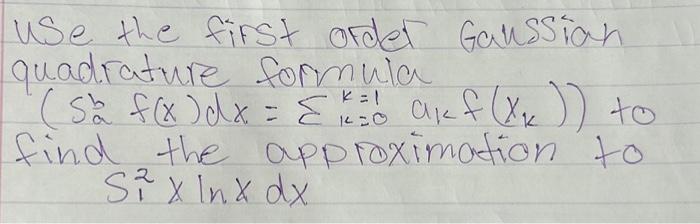 use the first order Gaussian
quadrature formula
(S^b_a f(x)dx = Σ^{k=1}_{k=0} a_k f(x_k)) to
find the approximation to
S^2_1 x ln x dx